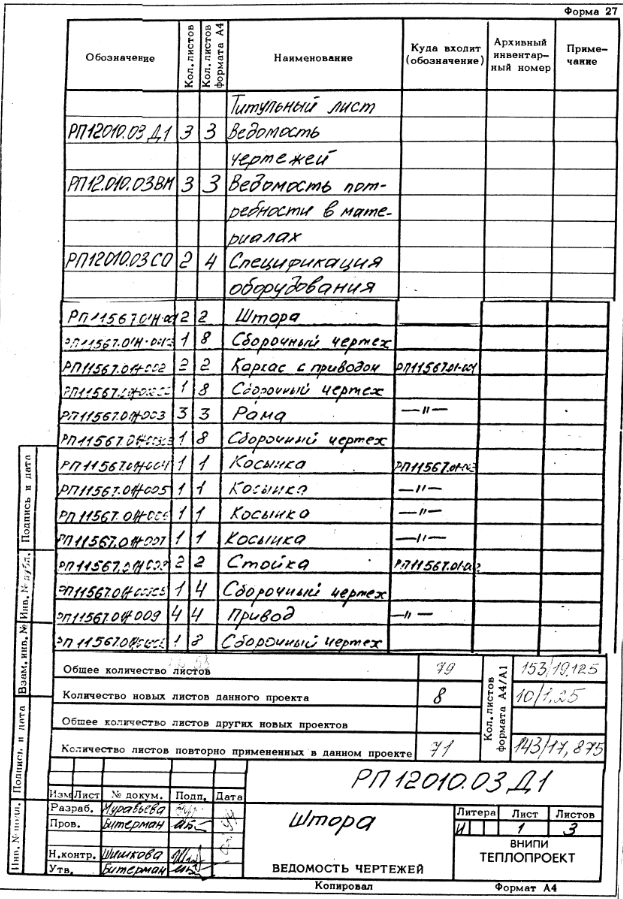 Форма 27
Обозначение Кол. листов Кол. листов формата А4 Наименование Куда входит (обозначение) Архивный инвентарный номер Примечание
Титульный лист
РП12010.03 Д1 3 3 Ведомость
чертежей
РП12.010.03ВМ 3 3 Ведомость пот-
ребности в мате-
риалах
РП12010.03 СО 2 4 Спецификация
оборудования
2 2 Штора
1 8 Сборочный чертеж
РП11567.01Н-002 2 2 Каркас с приводом РП11567.01-001
1 8 Сборочный чертеж
РП11567.01Н-003 3 3 Рама —〃—
1 8 Сборочный чертеж
РП11567.01Н-004 1 1 Косынка
РП11567.01Н-005 1 1 Косынка —〃—
РП11567.01Н-006 1 1 Косынка —〃—
РП11567.01Н-007 1 1 Косынка —〃—
2 2 Стойка
1 4 Сборочный чертеж
РП11567.01Н-009 4 4 Привод —〃—
1 8 Сборочный чертеж
Общее количество листов 79 Кол. листов формата А4/А1 153/19.125
Количество новых листов данного проекта 8 10/1,25
Общее количество листов других новых проектов
Количество листов повторно примененных в данном проекте 71 143/17,875
Подпись и дата
Инв. № дубл.
Взам. инв. №
Подпись и дата
Инв. № подл.
РП12010.03 Д1
Изм Лист № докум. Подп. Дата
Разраб. Муравьева
Пров. Битерман
Н.контр. Шишкова
Утв. Битерман
Штора
ВЕДОМОСТЬ ЧЕРТЕЖЕЙ
Литера Лист Листов
И 1 3
ВНИПИ
ТЕПЛОПРОЕКТ
Копировал Формат А4